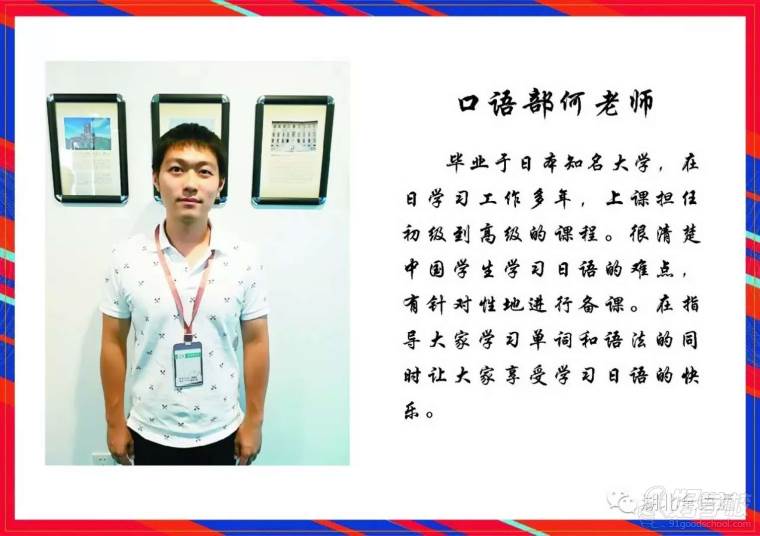 口语部何老师
毕业于日本知名大学，在
日学习工作多年，上课担任
初级到高级的课程。很清楚
中国学生学习日语的难点，
有针对性地进行备课。在指
导大家学习单词和语法的同
时让大家享受学习日语的快
乐。
www.91goodschool.com